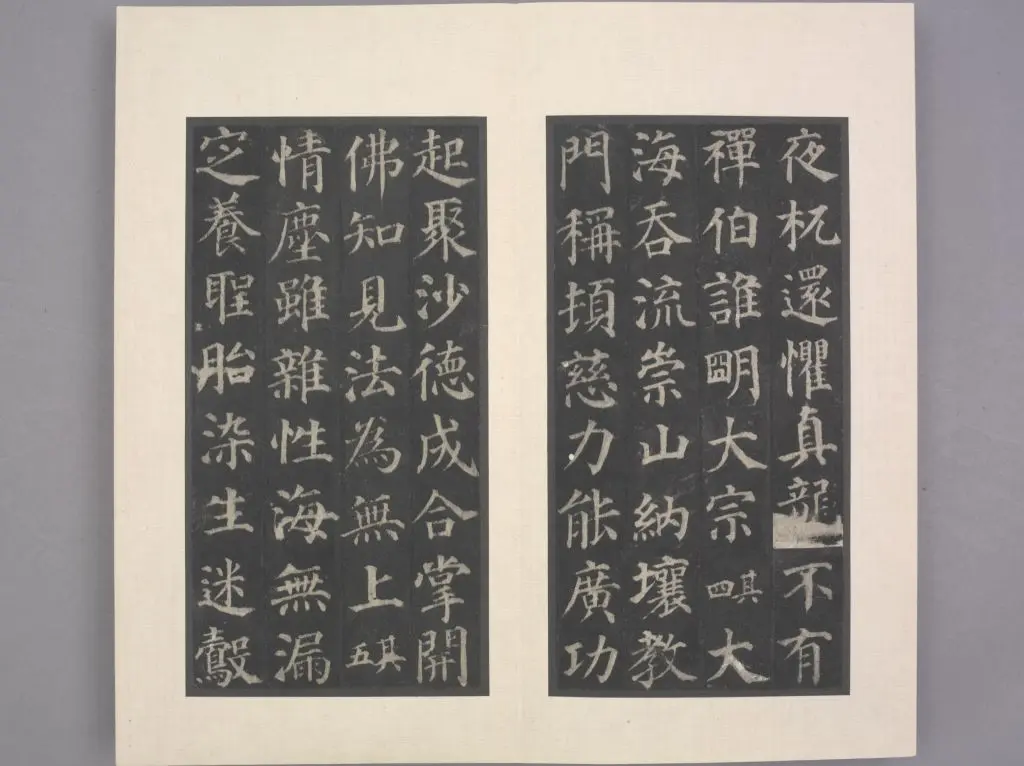 夜杌還懼真龍不有
禪伯誰朙大宗其四大
海吞流崇山納壤教
門稱頓慈力能廣功
起聚沙德成合掌開
佛知見法為無上其五
情塵雖雜性海無漏
㝎養聖胎染生迷鷇